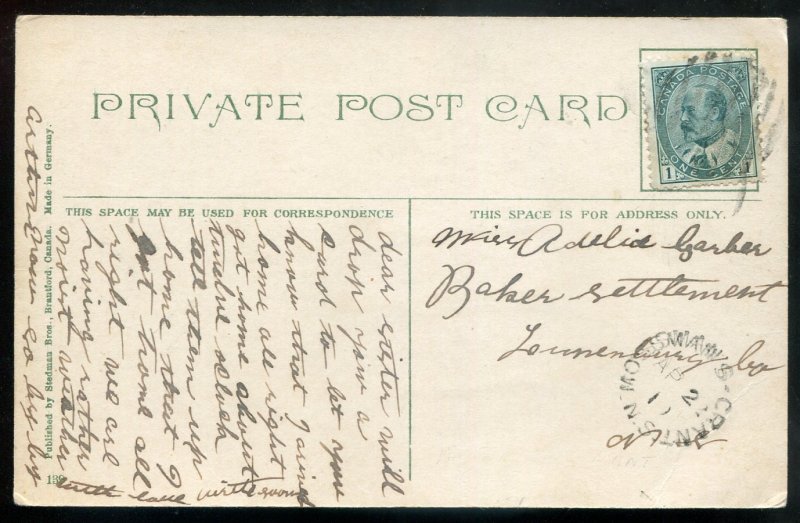 PRIVATE POST CARD
CANADA POSTAGE
1 ONE CENT 1
THIS SPACE MAY BE USED FOR CORRESPONDENCE
THIS SPACE IS FOR ADDRESS ONLY.
Adelia Garber
Baker settlement
Lunenburg Co
dear sister will
drop you a
card to let you
know that I arived
home all right
got home about
twelve oclock
tell them up
home that I
got home all
right we are
having rather
moist weather
with love write soon
Arthur now so by by
Published by Stedman Bros., Brantford, Canada. Made in Germany.
GRANT
AP 2